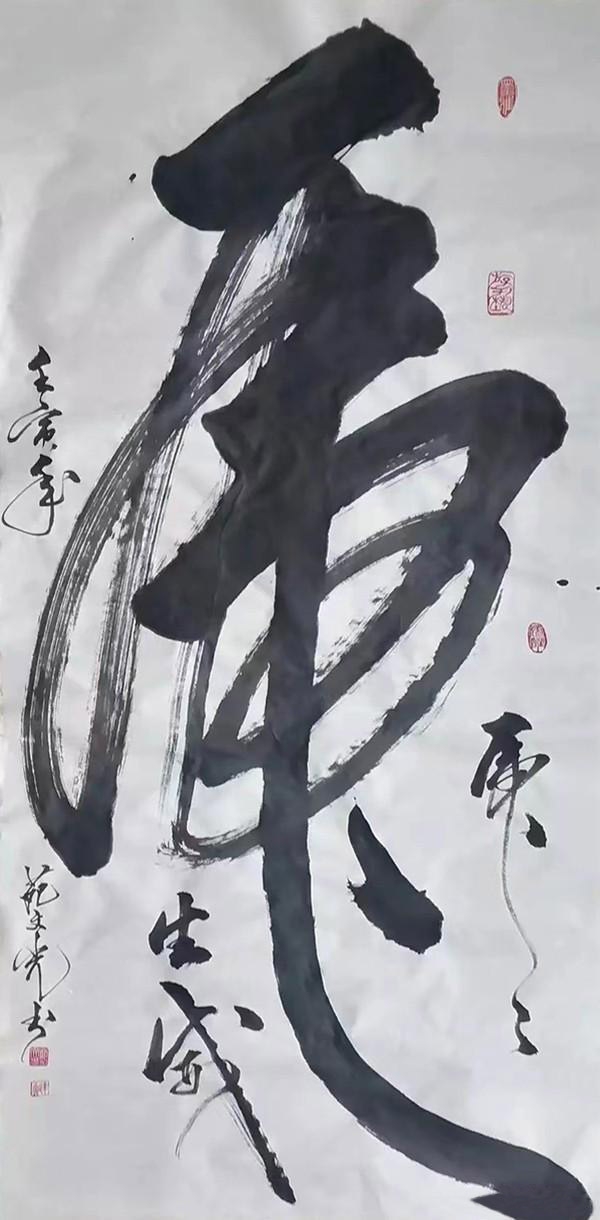 虎
虎〻
生威
壬寅年
范文光书